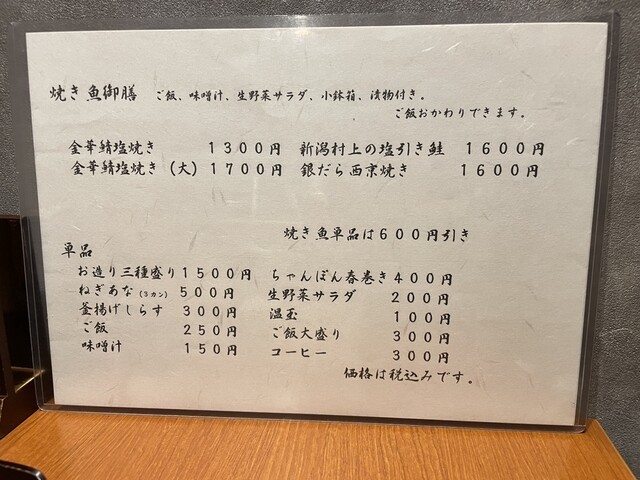 焼き魚御膳 ご飯、味噌汁、生野菜サラダ、小鉢箱、漬物付き。
ご飯おかわりできます。
金華鯖塩焼き 1300円 新潟村上の塩引き鮭 1600円
金華鯖塩焼き (大) 1700円 銀だら西京焼き 1600円
焼き魚単品は600円引き
単品
お造り三種盛り 1500円 ちゃんぽん春巻き 400円
ねぎあな (3カン) 500円 生野菜サラダ 200円
釜揚げしらす 300円 温玉 100円
ご飯 250円 ご飯大盛り 300円
味噌汁 150円 コーヒー 300円
価格は税込みです。